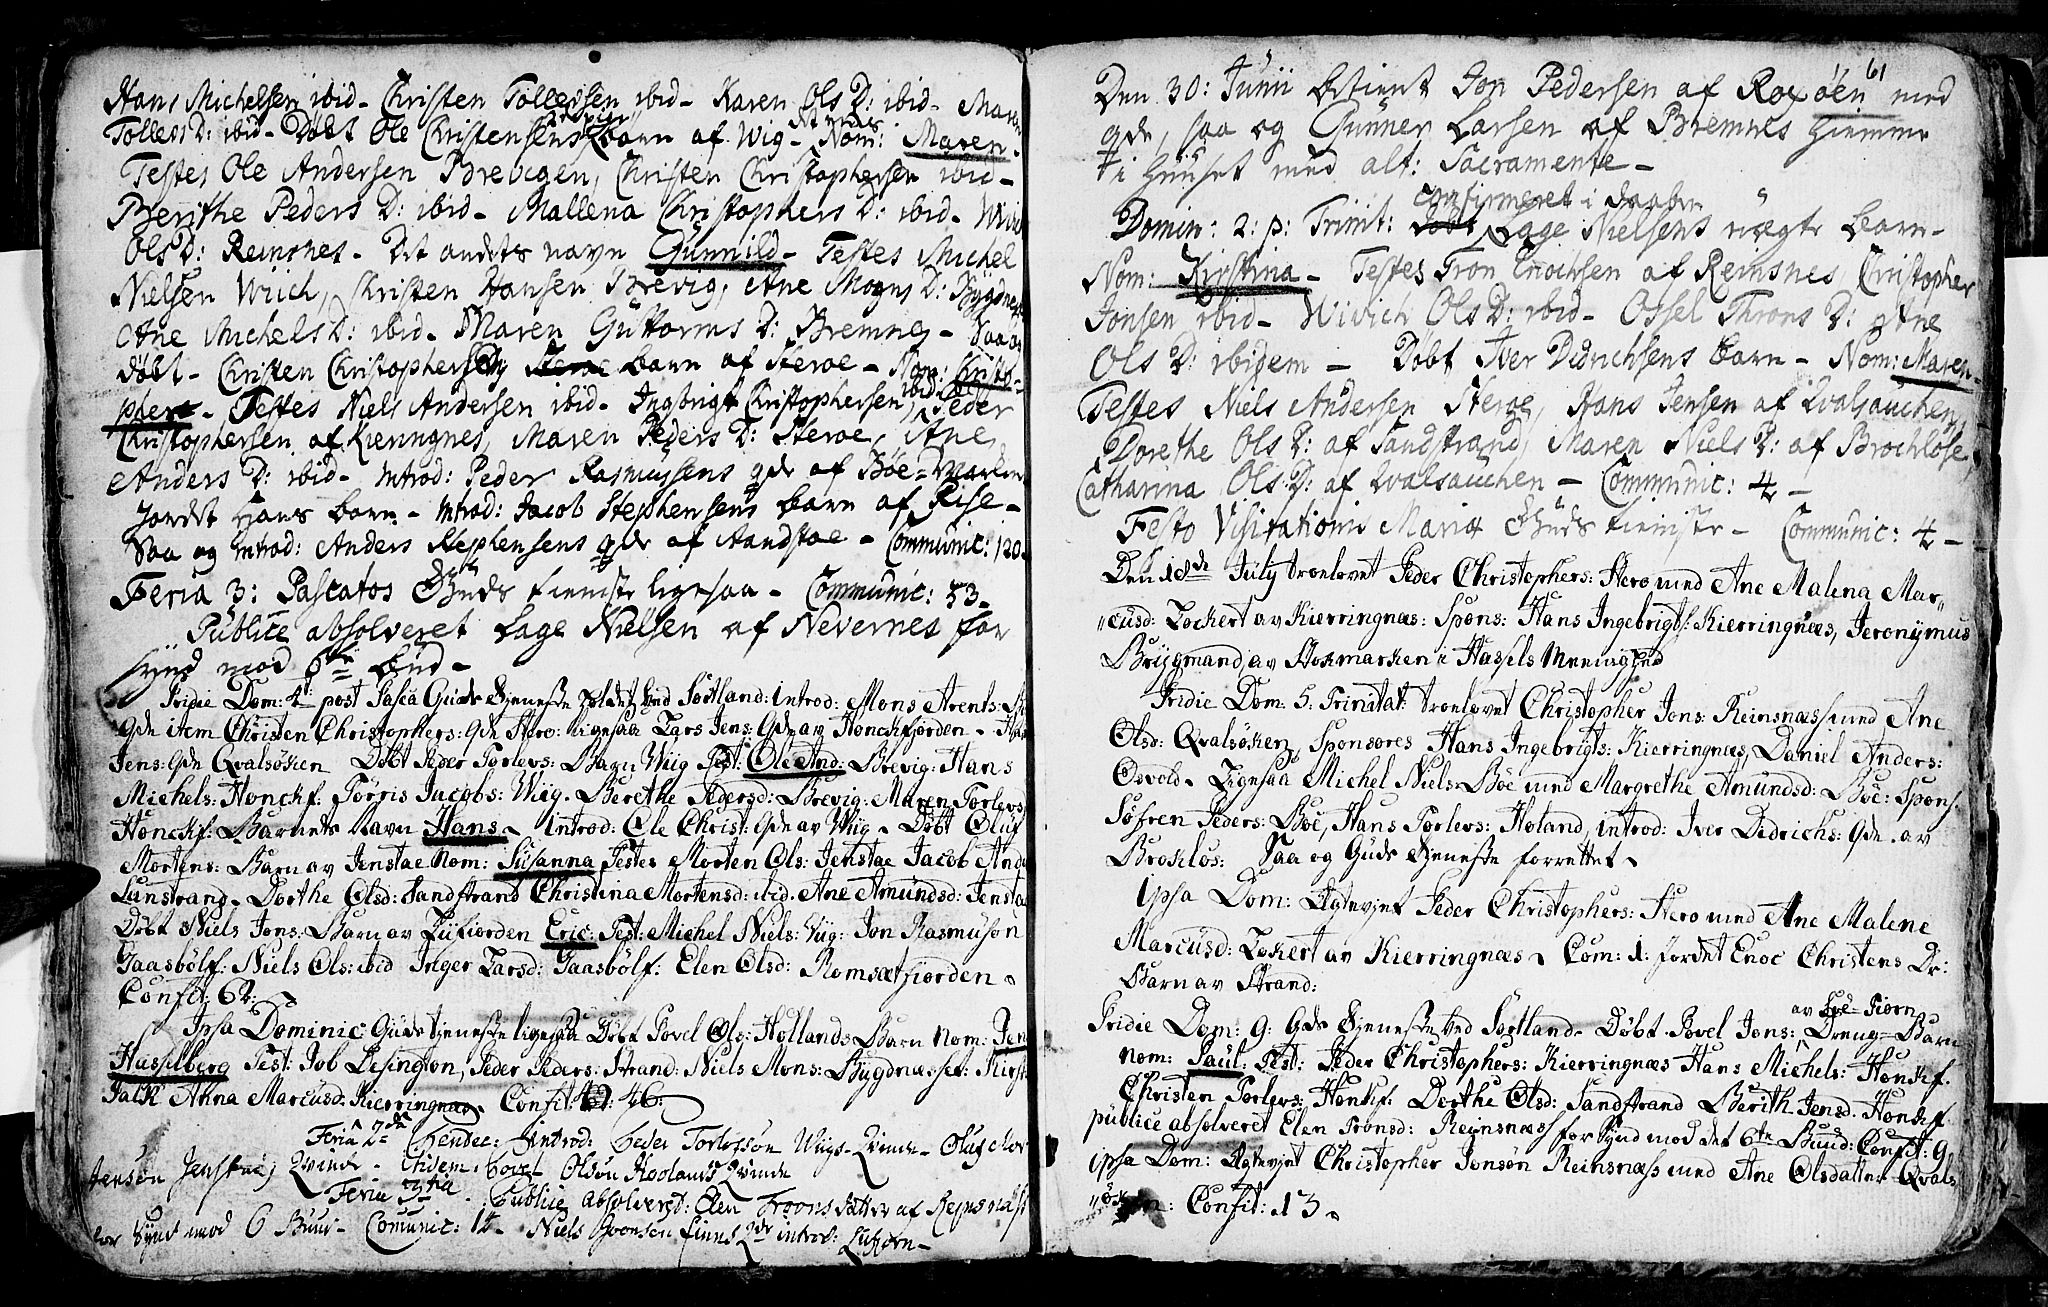 Hans Michelsen ibid - Christen Tollessen ibid - Karen Ols D: ibid - Maren
Tollevs D: ibid - Døbt Ole Christensens 2de børn af Wig - Nom: Maren -
Testes Ole Andersen Brevigen, Christen Christophersen ibid -
Berithe Peders D: ibid - Mallena Christophers D: ibid -
Ols D: Reinsnes - Det andets navn Gunnild - Testes Michel
Nielsen Wiich, Christen Hansen Brevig, Ane Mogns D: Bygdnes
Ane Michels D: ibid - Maren Guttorms D: Bremnes - Saa og
døbt - Christen Christophersens barn af Steroe - Nom: Christo=
pher - Testes Niels Andersen ibid - Ingbrigt Christophersen ibid, Peder
Christophersen af Kieringnes, Maren Peders D: Steroe, Ane
Anders D: ibid - Introd: Peder Rasmussens qde af Böe =
Jordet Hans barn - Introd: Jacob Stephensens barn af Rise -
Saa og Introd: Anders Stephensens qde af Aandstae - Communic: 120
Feria 3: Pascatos Guds tieniste ligesaa - Communic: 53 -
Publice absolveret Lage Nielsen af Nevernes for
synd mod 6te bud -
Pridie Dom: 4t post Pasca Guds Tjeneste holdet ved Sortland: Introd: Mons Arents:
Qde item Christen Christophers: Qde Stero: ligesaa Lars Jens: Qde av Honckfjorden -
Jens: Qde Qvalsöken Döbt Peder Torlevs: Barn Wiig Test: Ole And: Brevig: Hans
Michels: Honckf: Törris Jacobs: Wiig. Berethe Pedersd: Brevig: Maren Torlevs
Honckf: Barnets Navn Hans - introd: Ole Christ: Qde av Wiig - Döbt Oluf
Mortens: Barn av Jenstae Nom: Susanna Testes Morten Ols: Jenstae Jacob And:
- Dorthe Olsd: Sandstrand Christina Mortensd: ibid. Ane Amundsd: Jensta
Döbt Niels Jons: Barn av Lufiorden Eric: Test: Michel Niels: Wiig: Jon Rasmuson
Gaasbölf: Niels Ols: ibid Inger Larsd: Gaasbölf: Elen Olsd: Romsætfjorden -
Confit: 62:
Ipsa Dominic: Guds tjeneste ligesaa Döbt Povel Ols: Hollands Barn Nom: Jens
Hasselberg Test: Job Lesington, Peder Peders: Strand: Niels Mons: Bugdnæsset: Kirst
Falk Anna Marcusd: Kierringnæs - Confit: 46:
Feria 2da Pendec: Introd: Peder Torlefsön Wiigs - Qvinde - Oluf Mor
Jensön Jenstae Qvinde - Itidem Povel Olsön Hoolands Qvinde
Feria 3tia - Publice absolveret: Elen Troonsdatter af Reinsnæss
for Synd mod 6 Buud - Comunic: 14 - Niels finns Qde introd: Lufjorn -
61
Den 30: Junii betient Jon Pedersen af Roxöen med
qde, saa og Gunner Larsen af Bremnes hiemme
i Huuset med alt: Sacramente -
Domin: 2: p: Trinit: confirmeret i daaben Lage Nielsens uægte barn -
Nom: Kirstina - Testes Tron Enochsen af Reinsnes, Christopher
Jonsen ibid - Wivich Ols D: ibid - Ossel Throns D: Ane
Ols D: ibidem - Døbt Iver Didrichsens barn - Nom: Maren -
Testes Niels Andersen Steroe, Hans Jensen af Qvalsauchen,
Dorethe Ols D: af Sandstrand, Maren Niels D: af Brochløse,
Catharina Ols: D: af Qvalsauchen - Communic: 4 -
Festo Visitationis Mariæ Guds tieniste - Communic: 4 -
Den 18de July troelovet Peder Christophers: Stero med Ane Malena Mar„
„cusd: Lockert av Kierringnæs: Spons: Hans Ingebrigts: Kierringnæs, Jeronymus
Brygmand av Stokmarken i Hassels Menighed
Pridie Dom: 5. Trinitat: troelovet Christopher Jons: Reinsnæss med Ane
Olsd: Qvalsöken, Sponsores Hans Ingebrigts: Kierringnæs, Daniel Anders:
Osvold - Ligesaa Michel Niels: Böe med Margrethe Amundsd: Böe: Spons:
Söfren Peders: Böe, Hans Torlevs: Holand, introd: Iver Dedrichs: Qde. av
Broklös: Saa og Guds Tjeneste forrettet -
Ipsa Dom: Egteviet Peder Christophers: Stero med Ane Malene
Marcusd: Lockert av Kierringnæs - Com: 1: Jordet Enoc Christens Dr:
Barn av Strand:
Pridie Dom: 9: Gds Tjeneste ved Sortland - Döbt Povel Jons: av Fiorn Dreng=Barn
Nom: Paul: Test: Peder Christophers: Kierringnæs Hans Michels: Honckf.
Christen Torlevs: Honkf: Dorthe Olsd: Sandstrand Berith Jensd: Honckf.
publice absolveret Elen Tronsd: Reinsnæss for Synd mod det 6te Buud: Confit: 9
ipsa Dom: Egteviet Christopher Jonsön Reinsnæss med Ane Olsdatter Qvals
Confit: 13 -